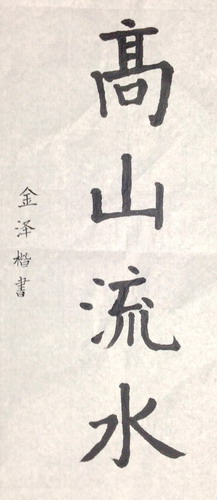 髙山流水
金泽楷書